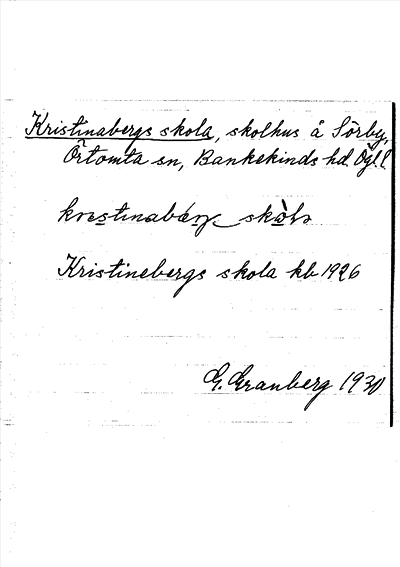 Kristinabergs skola, skolhus å Sörby,
Örtomta sn, Bankekinds hd. Ögl.
Kristinebergs skola kb 1926
G. Granberg 1930